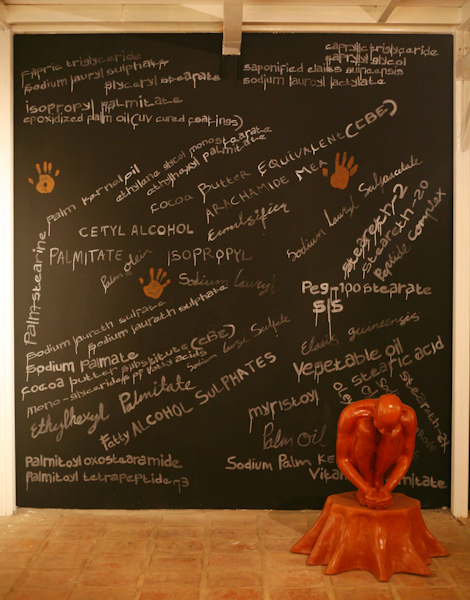 capric triglyceride
sodium lauryl sulphate
glyceryl stearate
isopropyl palmitate
epoxidized palm oil (UV cured coatings)
caprylic triglyceride
caprylyl glycol
saponified elaeis guineensis
sodium lauroyl lactylate
Palm kernel oil
ethylene glycol monostearate
ethylhexyl palmitate
cocoa Butter EQUIVALENT (CBE)
ARACHAMIDE MEA
CETYL ALCOHOL
Emulsifier
Sodium Lauryl
steareth-2
steareth-20
Peptide complex
PALMITATE
ISOPROPYL
Palm olein
Sodium Lauryl
Palm stearine
Peg-100 stearate
SLS
Elaeis guineensis
sodium laureth sulfate
sodium laureth sulphate
Sodium palmate
cocoa butter substitute (CBS)
mono-glycerides of fatty acids
Sodium Lauryl Sulfate
Vegetable oil
stearic acid
Ethylhexyl Palmitate
Fatty ALCOHOL SULPHATES
myristoyl
Palm Oil
Palmitoyl oxostearamide
Palmitoyl tetrapeptide-3
Sodium Palm